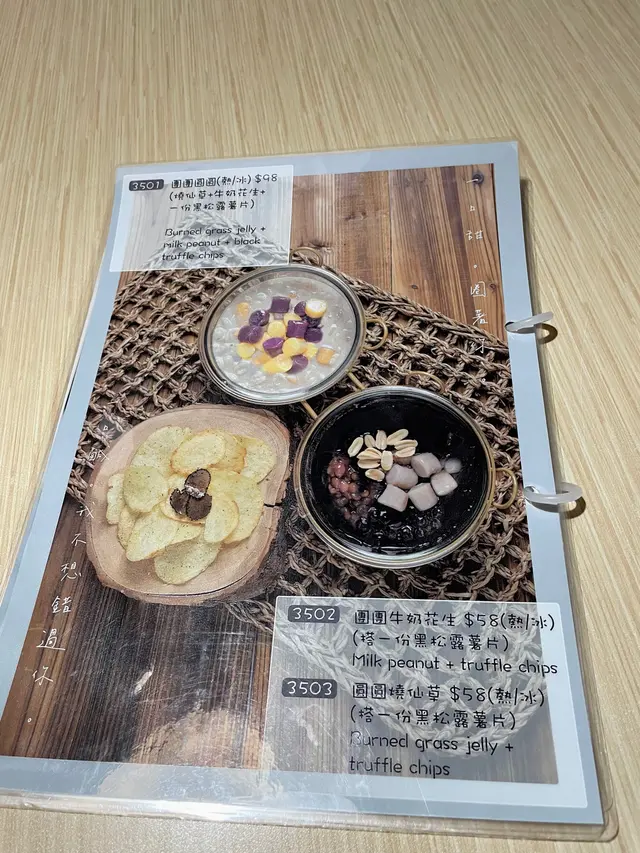 3501 團團圓圓(熱/冰) $98
(燒仙草+牛奶花生+
一份黑松露薯片)
Burned grass jelly +
milk peanut + black
truffle chips
一口甜。圈著你
一口鹹。我不想錯過你。
3502 團團牛奶花生 $58(熱/冰)
(搭一份黑松露薯片)
Milk peanut + truffle chips
3503 圓圓燒仙草 $58(熱/冰)
(搭一份黑松露薯片)
Burned grass jelly +
truffle chips